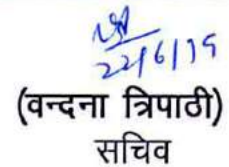 22/6/19
(वन्दना त्रिपाठी)
सचिव